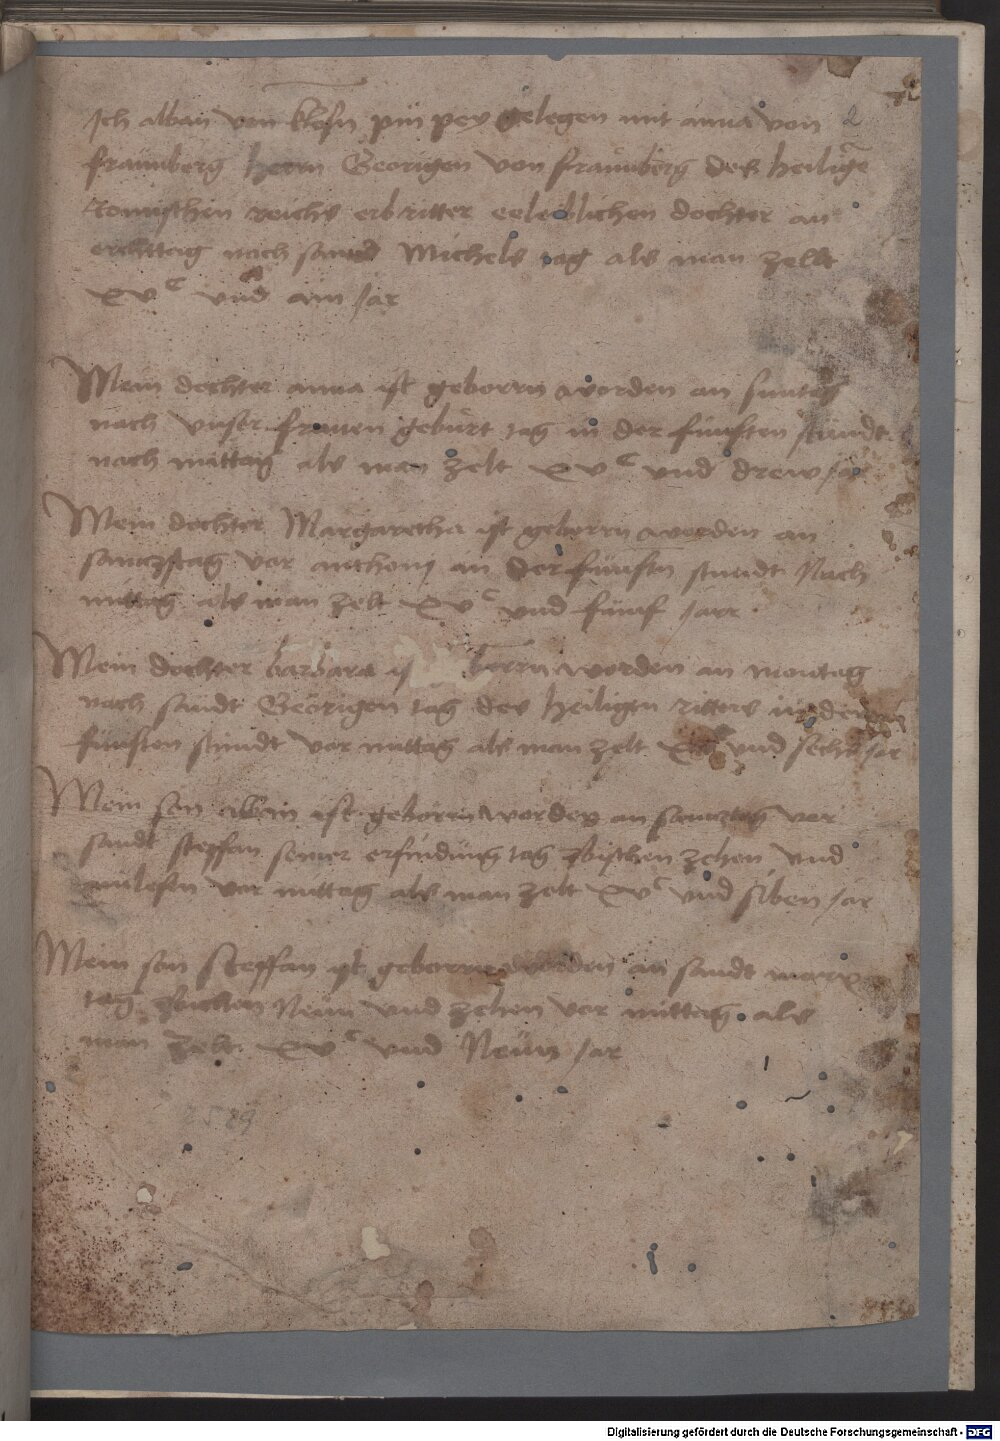 Ich alban von Klosn pin pey gelegen mit anna von
fraunberg herrn Georigen von fraunberg des heilige
Romischen reichs erb ritter eeleiblichen dochter an
erchttag nach sannd Michels tag als man zellt
xv c und ain Jar
Mein dochter anna ist geborrn worden an suntag
nach unser frauen geburt tag in der funften stundt
nach mittag als man zelt xv c und drew Jar
Mein dochter Margaretha ist geborrn worden an
sambstag vor anthony an der funften stundt Nach
mittag als man zelt xv c und funf Jarr
Mein dochter barbara is borrn worden an montag
nach sandt Georigen tag des heiligen ritters in der
funften stundt vor mittag als man zelt und sechs Jar
Mein son alban ist geborrn worden an samztag vor
sandt steffan seiner erfindung tag zbischen zehen und
ainlefen vor mittag als man zelt xv c und siben Jar
Mein son Steffan ist geborrn worden an sandt marx
tag zbischen Neun und zehen vor mittag als
man zelt xv c und Neun Jar
Digitalisierung gefördert durch die Deutsche Forschungsgemeinschaft - DFG